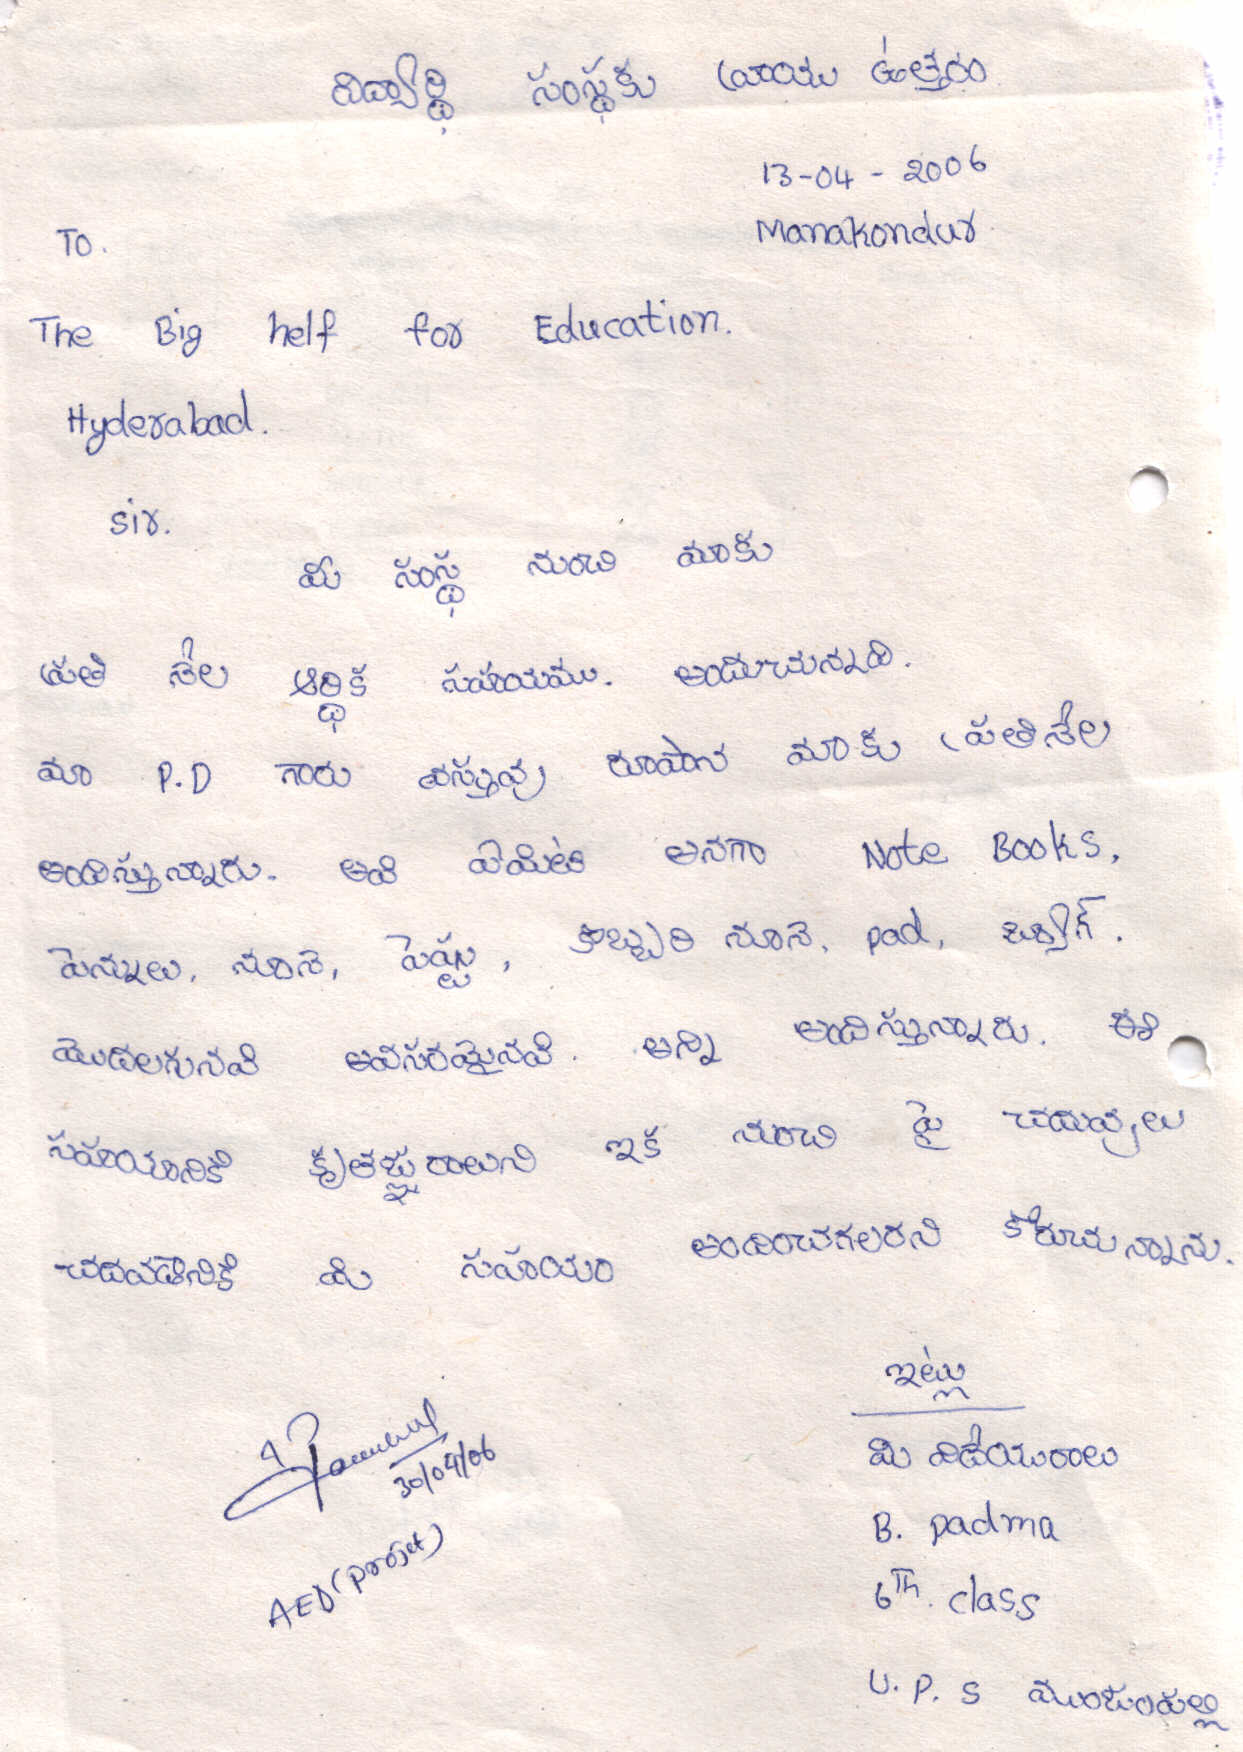 విద్యార్థి సంస్థకు వ్రాయు ఉత్తరం
13-04-2006
Manakondur
To.
The Big helf for Education.
Hyderabad.
sir.
మీ సంస్థ నుంచి మాకు
ప్రతి నేల ఆర్థిక సహాయము. అందుచున్నది.
మా P.D గారు వస్తువు రూపాన మాకు ప్రతినేల
అందిస్తున్నారు. అవి ఏమిటి అనగా Note Books,
పెన్నులు, నూనె, పేస్టు, కొబ్బరి నూనె, pad, బ్యాగ్.
మొదలగునవి అవసరమైనవి. అన్ని అందిస్తున్నారు. ఈ
సహాయానికి కృతజ్ఞురాలుని ఇక నుంచి పై చదువులు
చదవడానికి మీ సహాయం అందించగలరని కోరుచున్నాను.
ఇట్లు
మి విదేయురాలు
B. padma
6Th. class
U.P.S ముంజంపల్లి
30/04/06
AED(project)